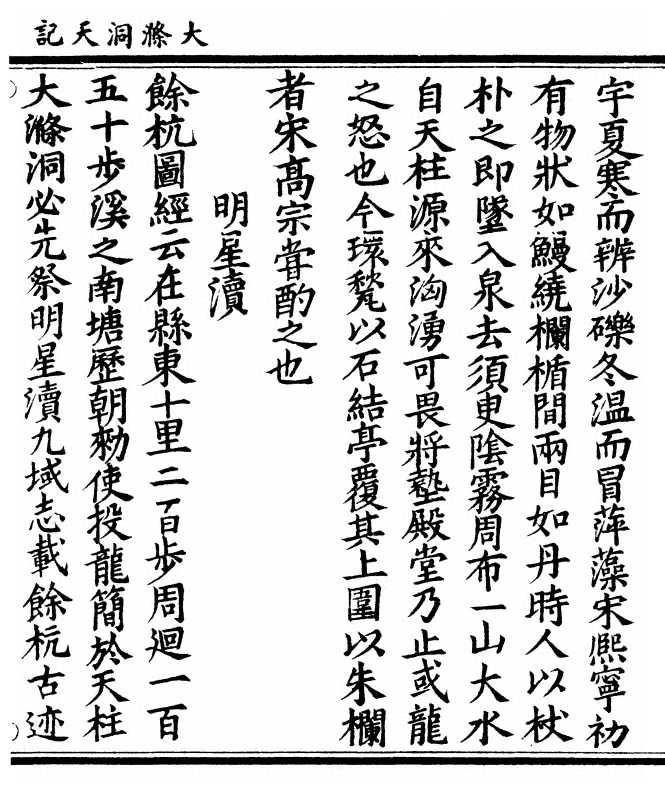 大滌洞天記
宇夏寒而辨沙礫冬溫而冒萍藻宋熈寧初
有物狀如鰻繞欄楯間兩目如丹時人以杖
朴之即墜入泉去須臾陰霧周布一山大水
自天柱源來洶湧可畏將墊殿堂乃止或龍
之怒也今環甃以石結亭覆其上圍以朱欄
者宋高宗甞酌之也
明星瀆
餘杭圖經云在縣東十里二百步周廻一百
五十步溪之南塘歷朝勑使投龍簡於天柱
大滌洞必先祭明星瀆九域志載餘杭古迹